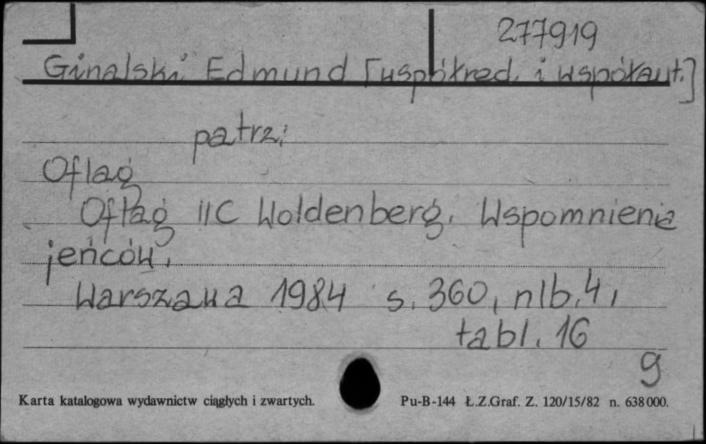 277919
Ginalski Edmund [współred. i współaut.]
patrz:
Oflag
Oflag IIC Woldenberg. Wspomnienia
jeńców.
Warszawa 1984 s. 360, nlb. 4,
tabl. 16
g
Karta katalogowa wydawnictw ciągłych i zwartych. Pu-B-144 Ł.Z.Graf. Z. 120/15/82 n. 638000.